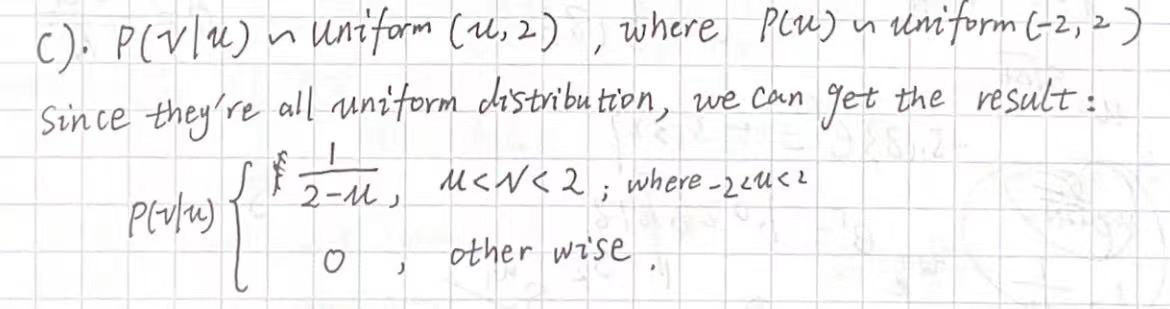 C). P(V|u) ~ uniform (u, 2) , where P(u) ~ uniform (-2, 2)
since they're all uniform distribution, we can get the result :
P(v|u) { 1/(2-u) , u<v<2 ; where -2<u<2
0 , other wise .